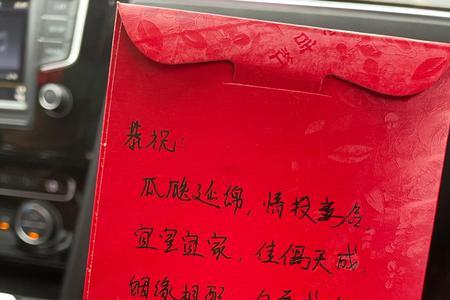 恭祝:
瓜瓞延绵,情投意合
宜室宜家,佳偶天成.
姻缘相配